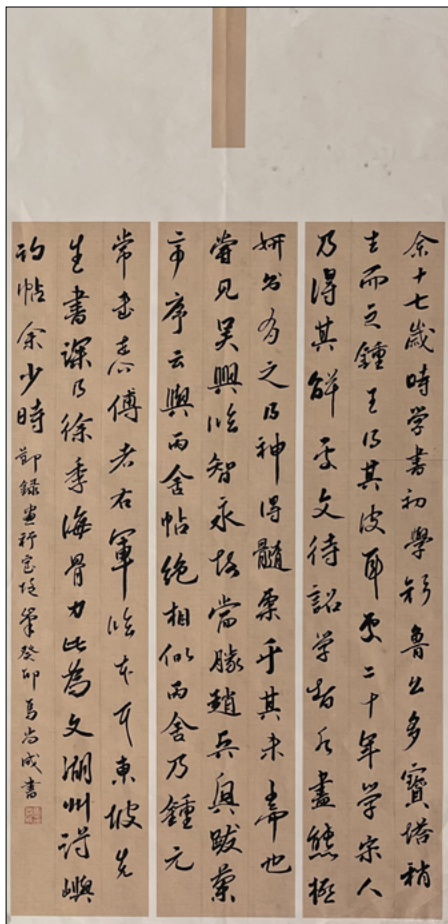 余十七歲時学書初學顏魯公多寶塔稍
去而之鍾王得其皮耳更二十年学宋人
乃得其解處文待詔学智永盡態極
妍則有之得神得髓概乎其未聞也
嘗見吳興臨智永故當勝趙吳興跋蘭
亭序云與丙舍帖絶相似丙舍乃鍾元
常書傳者右軍臨本耳東坡先
生書深得徐季海骨力此為文湖州嶼
帖余少時 節錄畫禪室隨筆癸卯馬尚成書